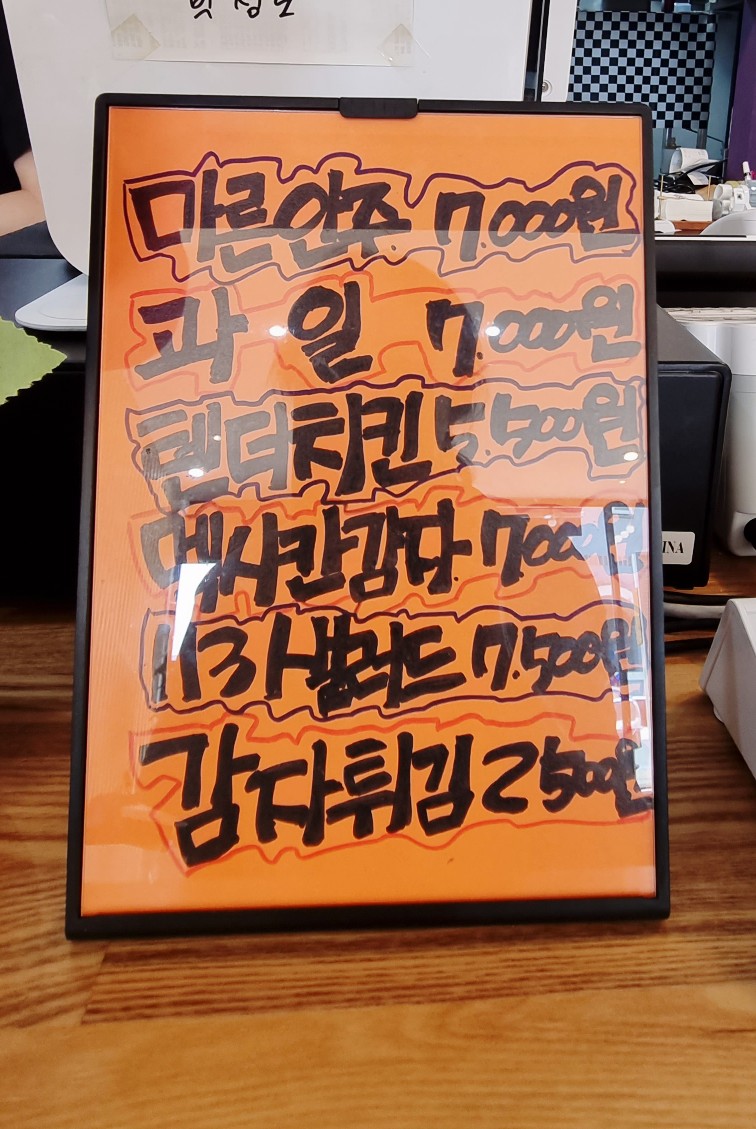 마른안주 7.000원
과일 7.000원
텐더치킨 5.500원
멕시칸감자 7.000원
H3 샐러드 7.500원
감자튀김 2500원
INA